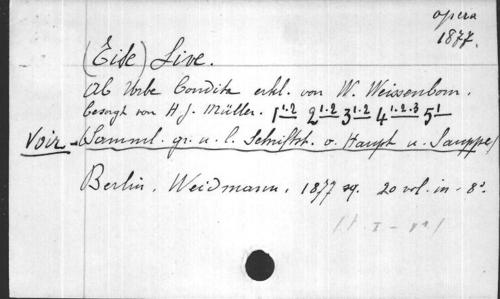 opera
1877.
(Tite) Live.
Ab Urbe Condita erkl. von W. Weissenborn.
besorgt von H. J. Müller. 1 1.2 2 1.2 3 1.2 4 1.2.3 5 1
Voir Samml. gr. u. l. Schriftst. v. Haupt u. Sauppe
Berlin. Weidmann. 1877 sq. 20 vol. in-8°.